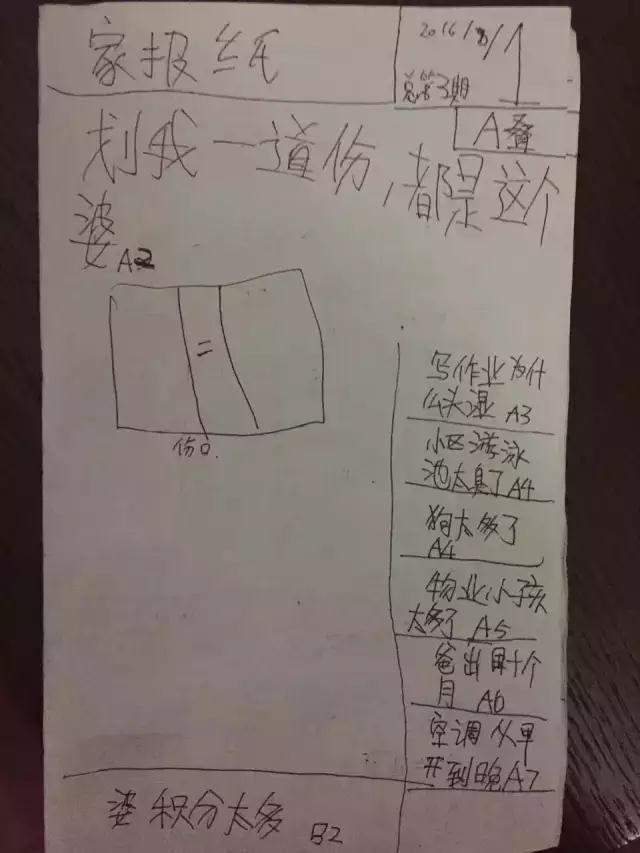 家报纸
2016/8/1
总第3期
A叠
划我一道份,都是这个
婆 A2
份口
写作业为什
么头湿 A3
小区游泳
池太臭了 A4
狗太多了
A4
物业小孩
太多了 A5
爸出用十个
月 A6
空调从早
开到晚 A7
婆积分太多 B2